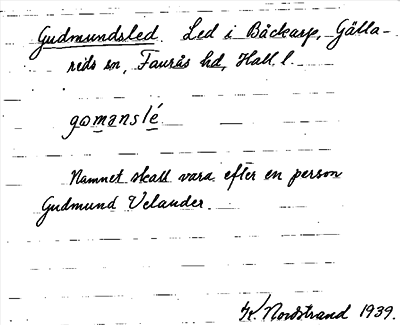 Gudmundsled. Led i Båckarp, Gälla-
rids sn, Faurås hd, Hall. l.
gomanslé.
Namnet skall vara efter en person
Gudmund Velander.
Nordstrand 1939.